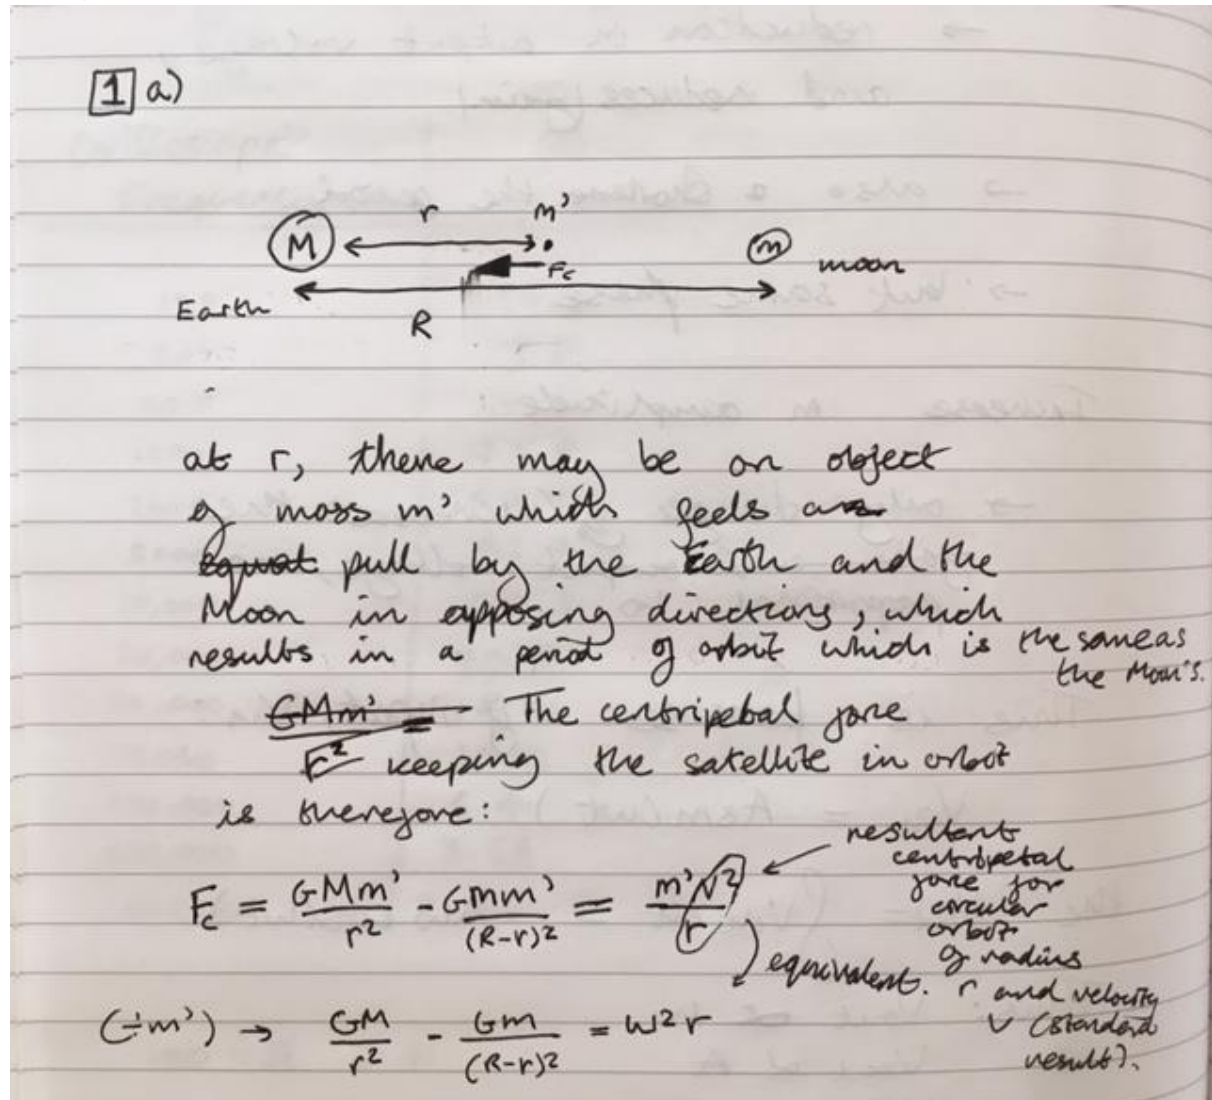 1 a)
r m'
M m moon
Fc
Earth
R
at r, there may be an object
of mass m' which feels a
equal pull by the Earth and the
Moon in opposing directions, which
results in a period of orbit which is the same as
the Moon's.
GMm' = The centripetal force
r² keeping the satellite in orbit
is therefore:
resultant
centripetal
force for
circular
orbit
of radius
r and velocity
v (standard
result).
Fc = GMm'/r² - Gmm'/(R-r)² = m'v²/r
equivalent.
(÷m') → GM/r² - Gm/(R-r)² = ω²r